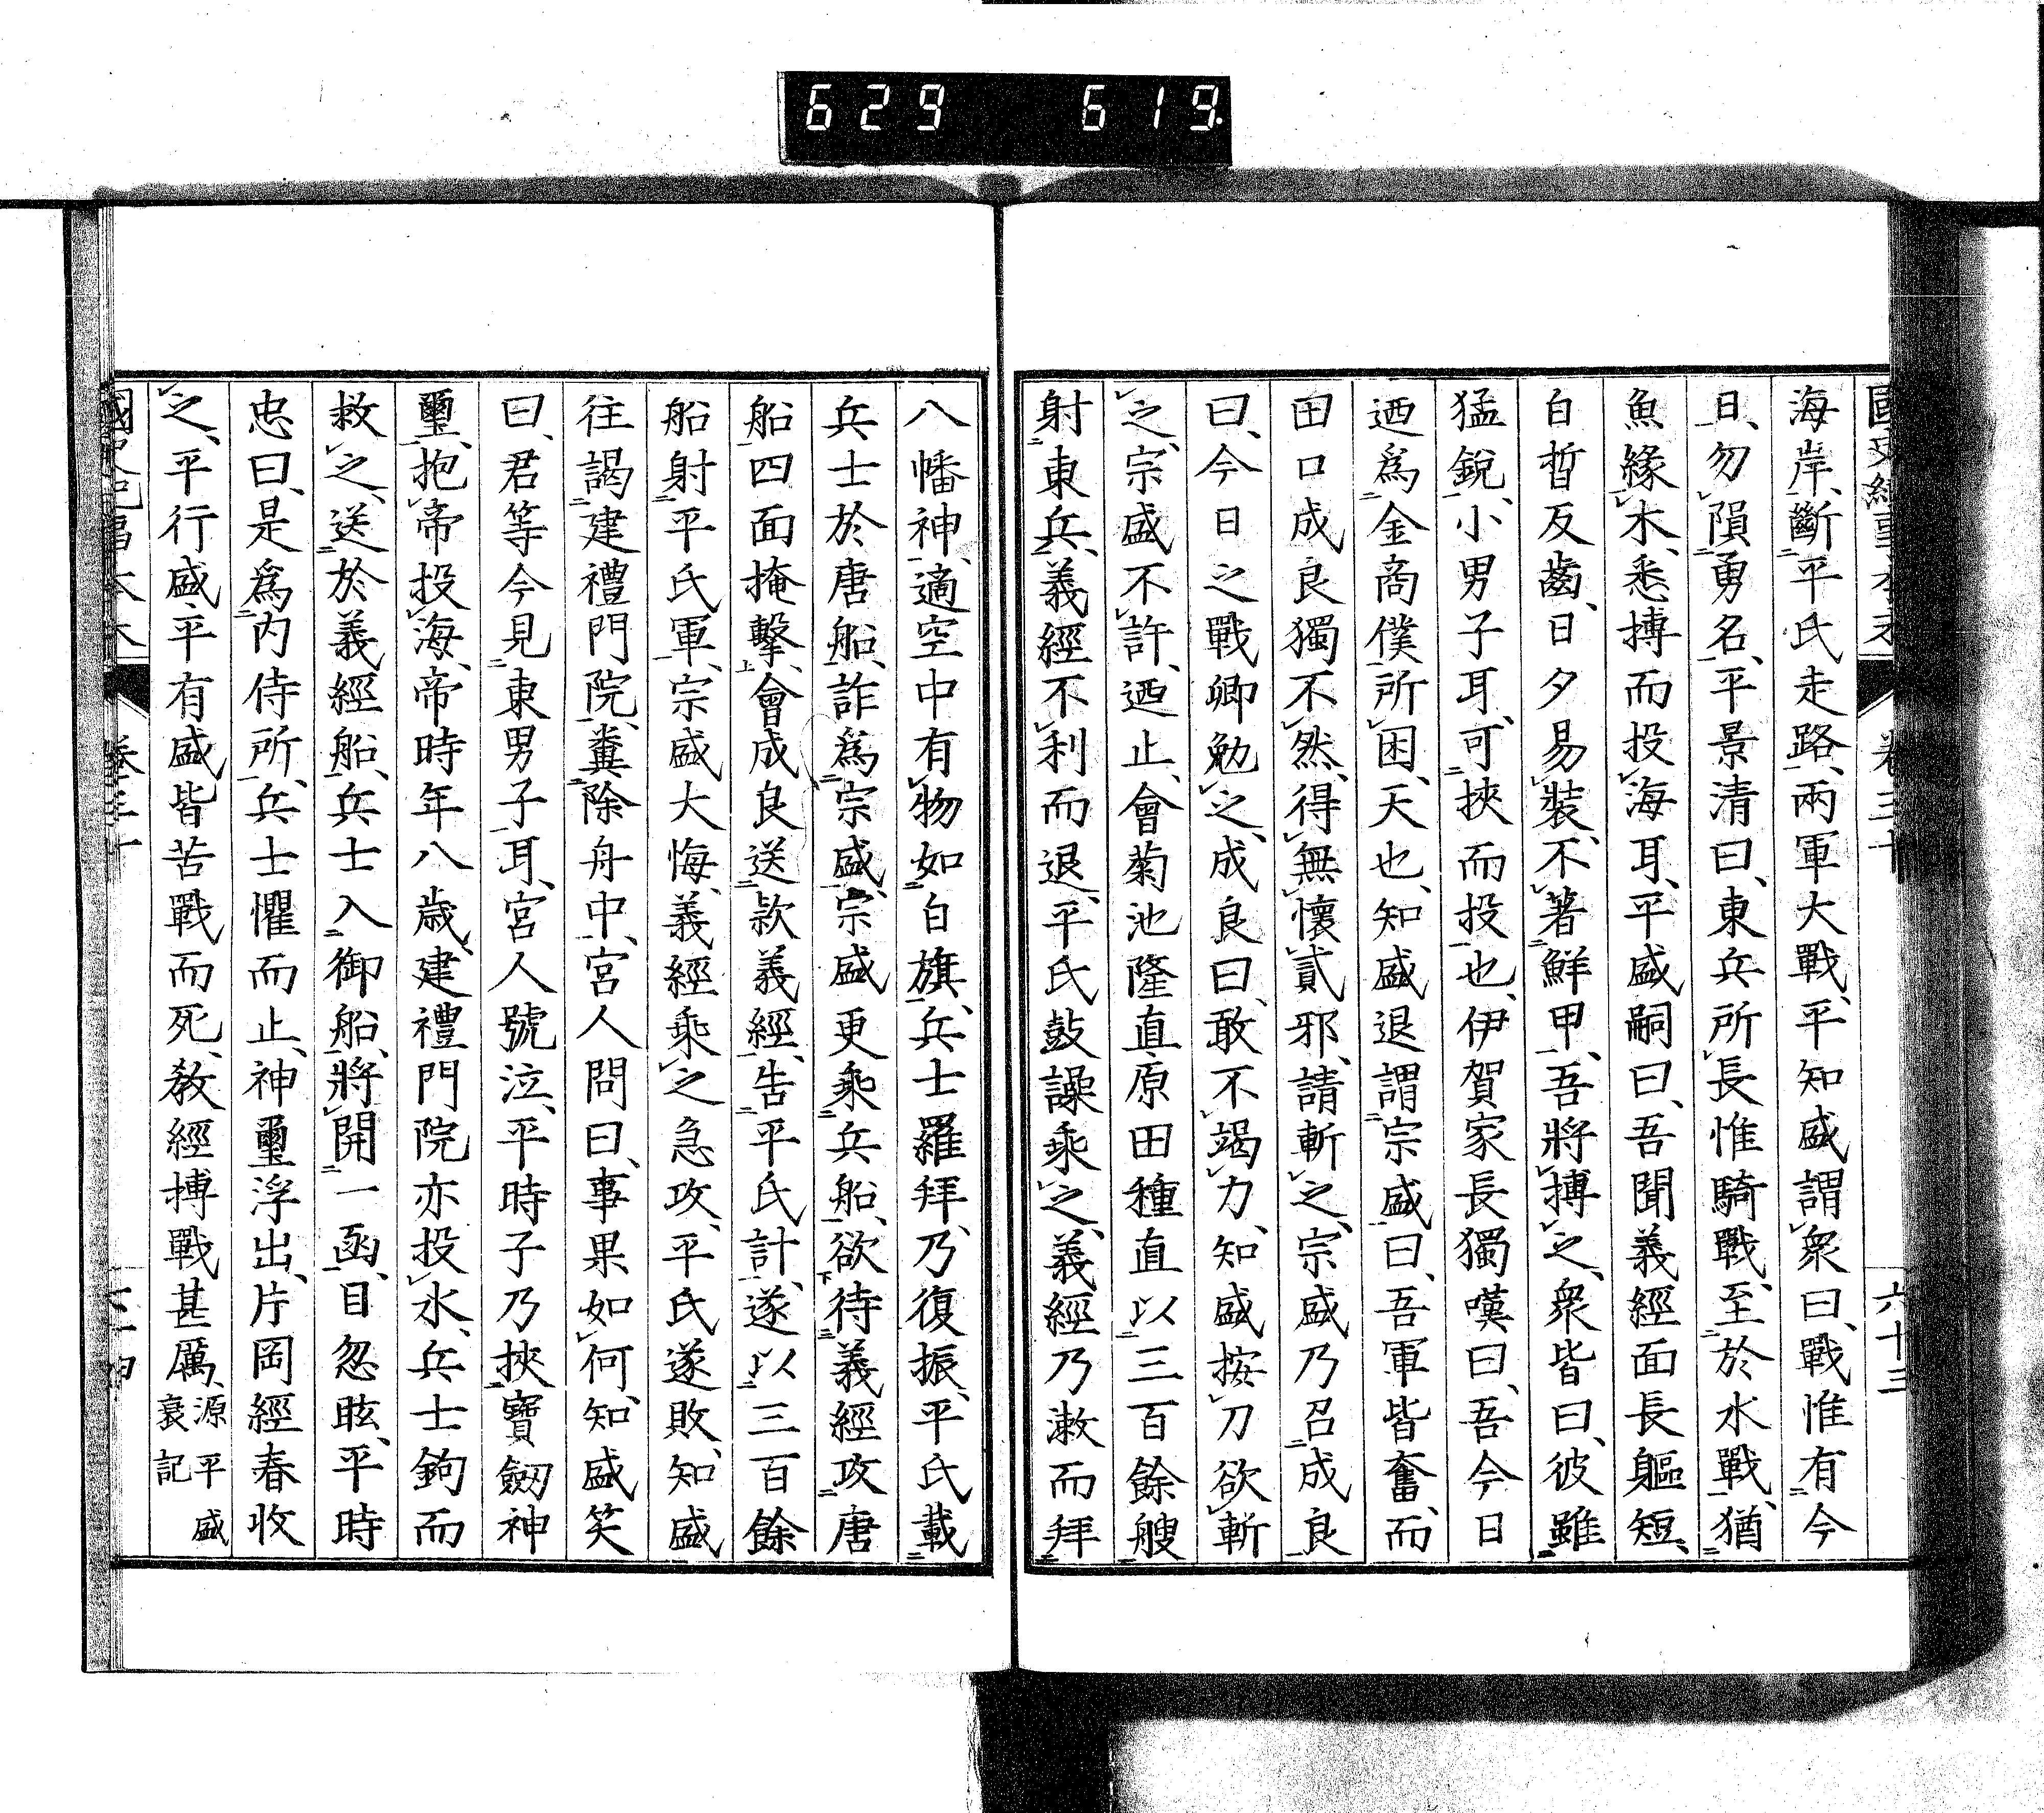 629 619.
海岸、斷平氏走路、兩軍大戰、平知盛謂衆曰、戰惟有今
日、勿隕勇名、平景清曰、東兵所長惟騎戰、至於水戰、猶
魚緣木、悉搏而投海耳、平盛嗣曰、吾聞義經面長軀短、
白晳反齒、日夕易裝、不著鮮甲、吾將搏之、衆皆曰、彼雖
猛銳、小男子耳、可挾而投也、伊賀家長獨嘆曰、吾今日
迺爲金商僕所困、天也、知盛退謂宗盛曰、吾軍皆奮、而
田口成良獨不然、得無懷貳邪、請斬之、宗盛乃召成良
曰、今日之戰卿勉之、成良曰、敢不竭力、知盛按刀欲斬
之、宗盛不許、迺止、會菊池隆直原田種直以三百餘艘
射東兵、義經不利而退、平氏鼓譟乘之、義經乃漱而拜
八幡神、適空中有物如白旗、兵士羅拜、乃復振、平氏載
兵士於唐船、詐爲宗盛、宗盛更乘兵船、欲待義經攻唐
船四面掩擊、會成良送款義經、告平氏計、遂以三百餘
船射平氏軍、宗盛大悔、義經乘之急攻、平氏遂敗、知盛
往謁建禮門院、糞除舟中、宮人問曰、事果如何、知盛笑
曰、君等今見東男子耳、宮人號泣、平時子乃挾寶劔神
璽、抱帝投海、帝時年八歲、建禮門院亦投水、兵士鉤而
救之、送於義經船、兵士入御船、將開一函、目忽眩、平時
忠曰、是爲內侍所、兵士懼而止、神璽浮出、片岡經春收
之、平行盛平有盛皆苦戰而死、敎經搏戰甚厲、源平盛
衰記
卷三十
六十三